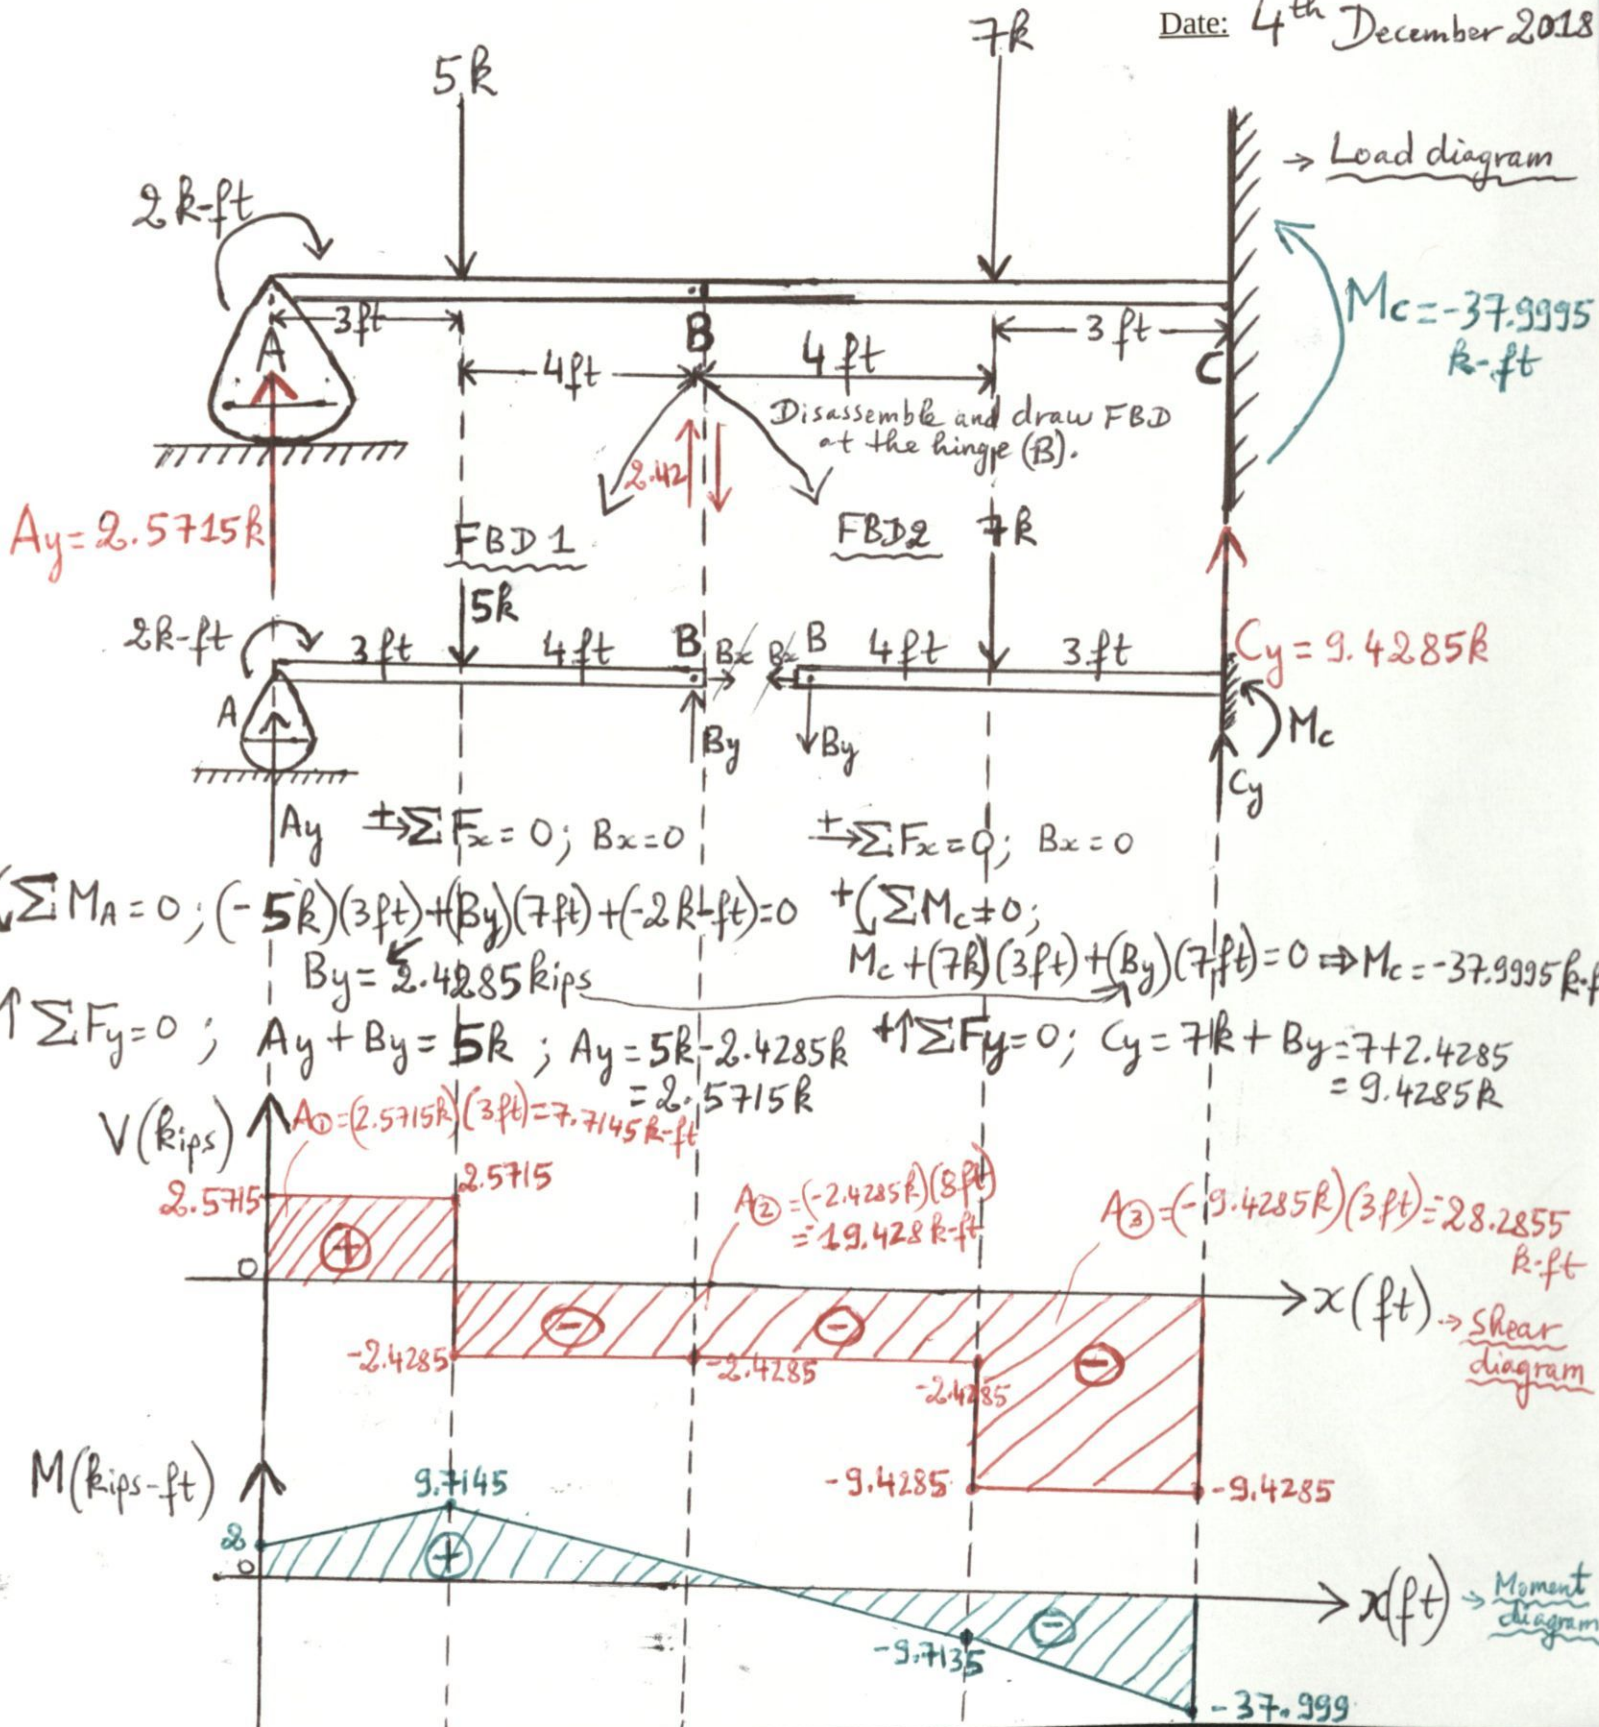 Date: 4th December 2018
5k
7k
→ Load diagram
2k-ft
Mc=-37.9995
k-ft
A
3ft
B
3ft
C
4ft
4ft
Disassemble and draw FBD
at the hinge (B).
2.42
Ay=2.5715k
FBD1
FBD2
7k
5k
Cy=9.4285k
2k-ft
3ft
4ft
B
Bx
Bx
B
4ft
3ft
A
By
By
Mc
Cy
Ay
+→ΣFx=0; Bx=0
+→ΣFx=0; Bx=0
ΣMA=0; (-5k)(3ft)+(By)(7ft)+(-2k-ft)=0
+ΣMc=0;
By=2.4285kips
Mc+(7k)(3ft)+(By)(7ft)=0⇒Mc=-37.9995k-f
↑ΣFy=0; Ay+By=5k; Ay=5k-2.4285k
=2.5715k
+↑ΣFy=0; Cy=7k+By=7+2.4285
=9.4285k
V(kips)
A①=(2.5715k)(3ft)=7.7145k-ft
2.5715
2.5715
A②=(-2.4285k)(8ft)
=19.428k-ft
A③=(-9.4285k)(3ft)=28.2855
k-ft
+
0
x(ft)
→ Shear
diagram
-
-
-
-2.4285
-2.4285
-2.4285
-9.4285
-9.4285
M(kips-ft)
9.7145
2
0
+
x(ft)
→ Moment
diagram
-
-9.7135
-37.999